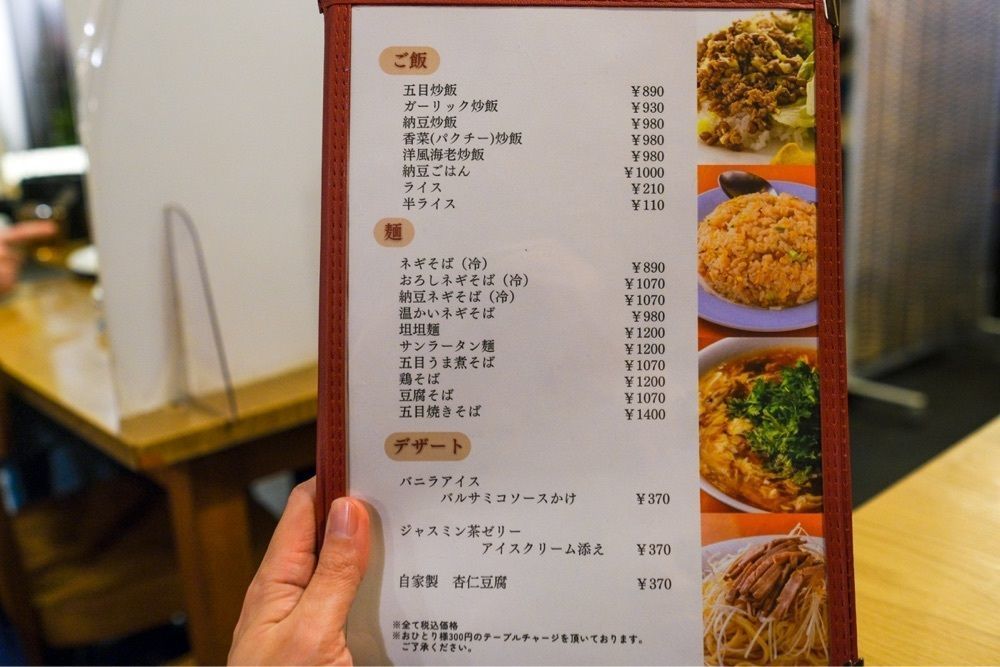 ご飯
五目炒飯 ¥890
ガーリック炒飯 ¥930
納豆炒飯 ¥980
香菜(パクチー)炒飯 ¥980
洋風海老炒飯 ¥980
納豆ごはん ¥1000
ライス ¥210
半ライス ¥110
麺
ネギそば（冷） ¥890
おろしネギそば（冷） ¥1070
納豆ネギそば（冷） ¥1070
温かいネギそば ¥980
坦坦麺 ¥1200
サンラータン麺 ¥1200
五目うま煮そば ¥1070
鶏そば ¥1200
豆腐そば ¥1070
五目焼きそば ¥1400
デザート
バニラアイス
バルサミコソースかけ ¥370
ジャスミン茶ゼリー
アイスクリーム添え ¥370
自家製 杏仁豆腐 ¥370
※全て税込価格
※おひとり様300円のテーブルチャージを頂いております。
ご了承ください。